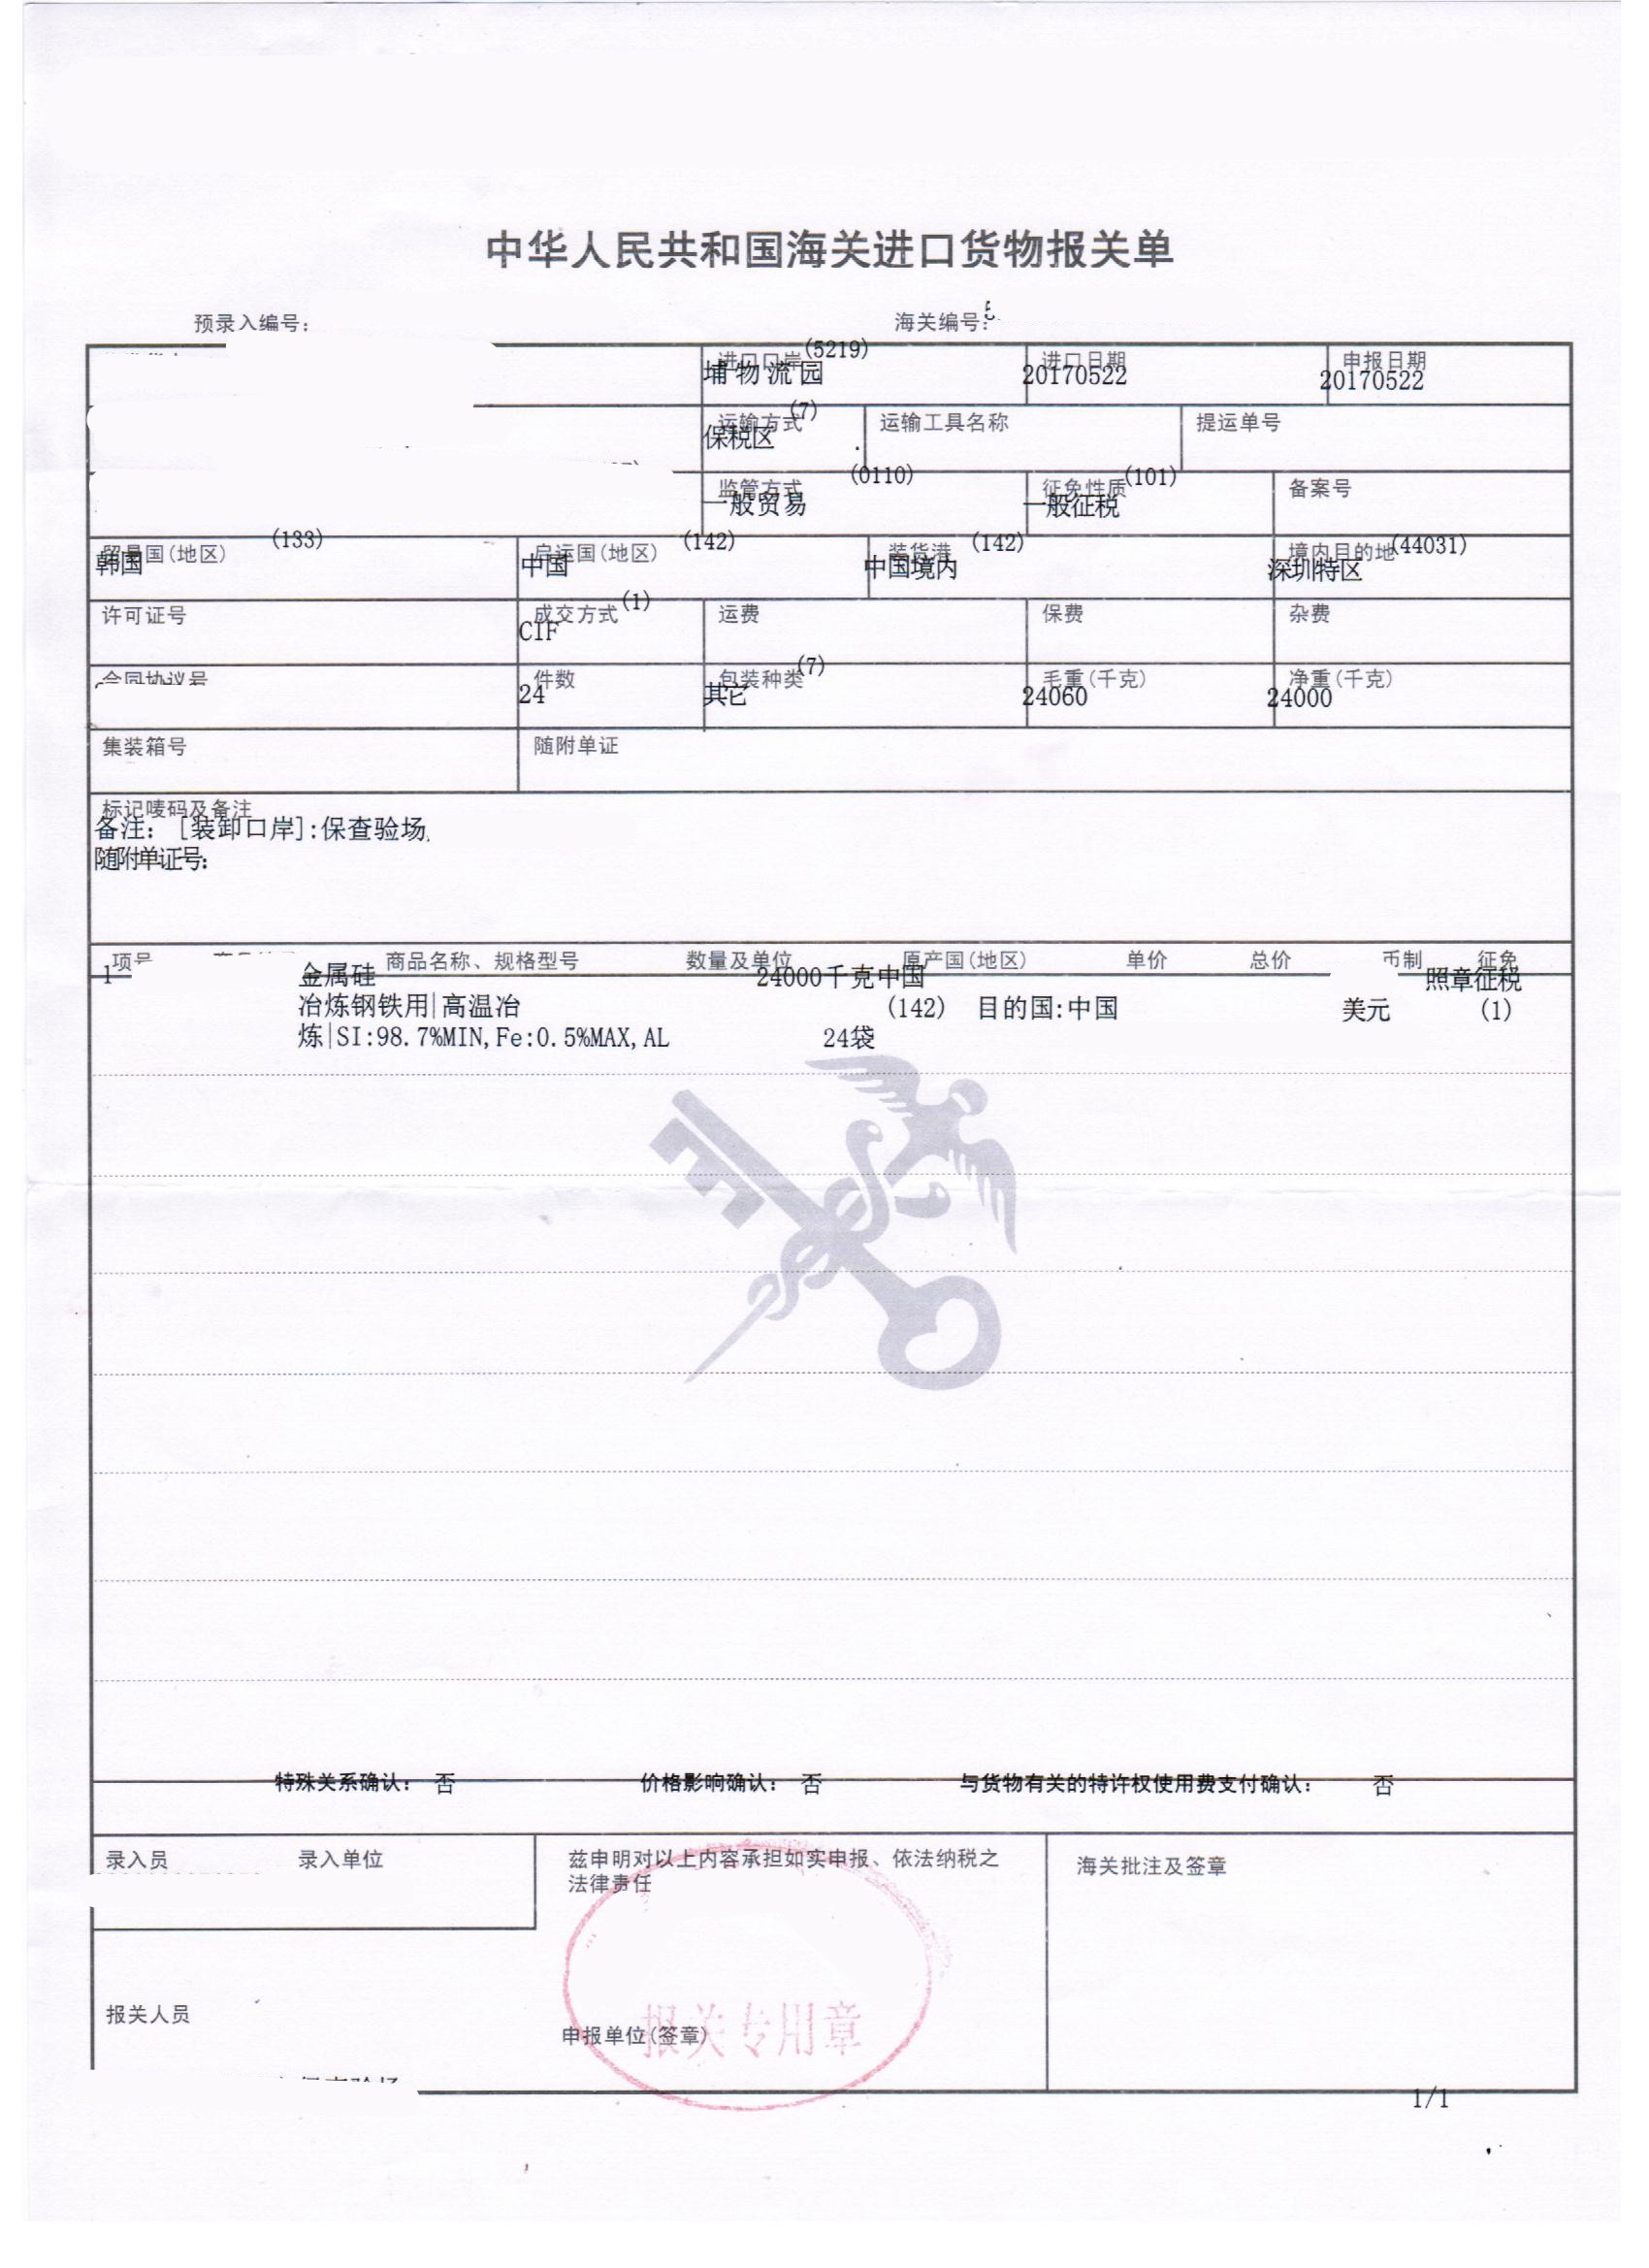 中华人民共和国海关进口货物报关单
预录入编号:
海关编号:
进口口岸 (5219)
埔物流园
进口日期
20170522
申报日期
20170522
运输方式 (7)
保税区
运输工具名称
提运单号
监管方式 (0110)
一般贸易
征免性质 (101)
一般征税
备案号
贸易国(地区) (133)
韩国
启运国(地区) (142)
中国
装货港 (142)
中国境内
境内目的地 (44031)
深圳特区
许可证号
成交方式 (1)
CIF
运费
保费
杂费
合同协议号
件数
24
包装种类 (7)
其它
毛重(千克)
24060
净重(千克)
24000
集装箱号
随附单证
标记唛码及备注
备注: [装卸口岸]:保查验场
随附单证号:
项号 商品名称、规格型号 数量及单位 原产国(地区) 单价 总价 币制 征免
1 金属硅 24000千克中国 照章征税
冶炼钢铁用|高温冶 (142) 目的国:中国 美元 (1)
炼|SI:98.7%MIN,Fe:0.5%MAX,AL 24袋
特殊关系确认: 否 价格影响确认: 否 与货物有关的特许权使用费支付确认: 否
录入员 录入单位
兹申明对以上内容承担如实申报、依法纳税之
法律责任
海关批注及签章
报关人员
申报单位(签章)
报关专用章
1/1